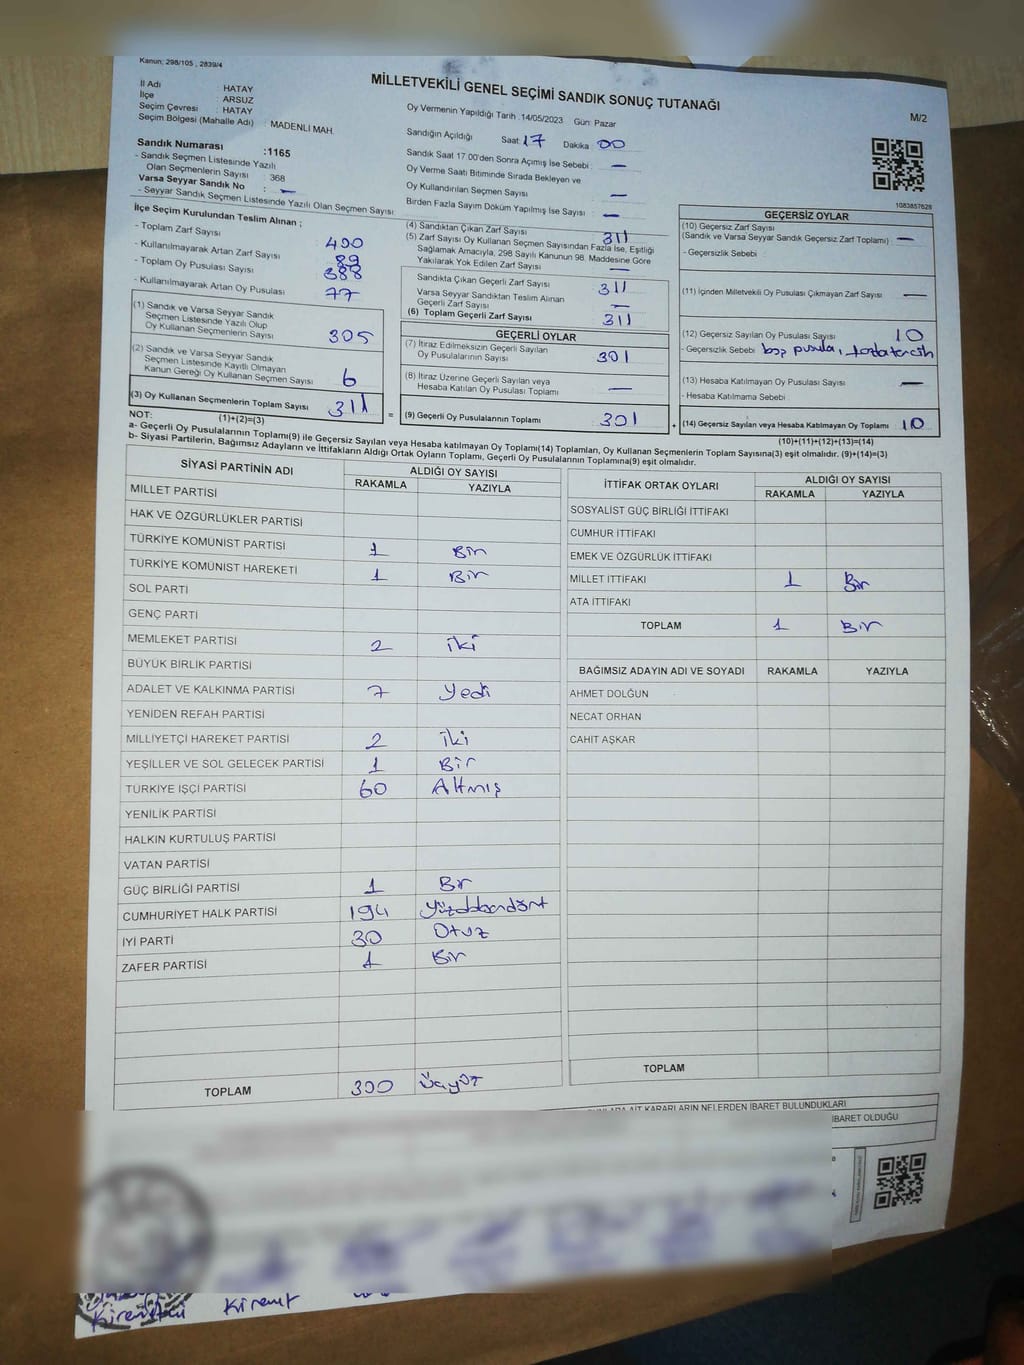 Kanun: 298/105 , 2839/4
MİLLETVEKİLİ GENEL SEÇİMİ SANDIK SONUÇ TUTANAĞI
M/2
İl Adı : HATAY
İlçe : ARSUZ
Seçim Çevresi : HATAY
Seçim Bölgesi (Mahalle Adı) : MADENLİ MAH.
Oy Vermenin Yapıldığı Tarih :14/05/2023 Gün: Pazar
Sandığın Açıldığı Saat: 17 Dakika: 00
Sandık Saat 17:00'den Sonra Açımış İse Sebebi : —
Oy Verme Saati Bitiminde Sırada Bekleyen ve
Oy Kullandırılan Seçmen Sayısı : —
Birden Fazla Sayım Döküm Yapılmış İse Sayısı : —
Sandık Numarası :1165
- Sandık Seçmen Listesinde Yazılı
Olan Seçmenlerin Sayısı : 368
Varsa Seyyar Sandık No : —
- Seyyar Sandık Seçmen Listesinde Yazılı Olan Seçmen Sayısı
1083857628
İlçe Seçim Kurulundan Teslim Alınan ;
- Toplam Zarf Sayısı : 400
- Kullanılmayarak Artan Zarf Sayısı : 89
- Toplam Oy Pusulası Sayısı : 388
- Kullanılmayarak Artan Oy Pusulası : 77
(1) Sandık ve Varsa Seyyar Sandık
Seçmen Listesinde Yazılı Olup
Oy Kullanan Seçmenlerin Sayısı : 305
(2) Sandık ve Varsa Seyyar Sandık
Seçmen Listesinde Kayıtlı Olmayan
Kanun Gereği Oy Kullanan Seçmen Sayısı : 6
(3) Oy Kullanan Seçmenlerin Toplam Sayısı : 311
(1)+(2)=(3)
(4) Sandıktan Çıkan Zarf Sayısı : 311
(5) Zarf Sayısı Oy Kullanan Seçmen Sayısından Fazla İse, Eşitliği
Sağlamak Amacıyla, 298 Sayılı Kanunun 98. Maddesine Göre
Yakılarak Yok Edilen Zarf Sayısı : —
Sandıkta Çıkan Geçerli Zarf Sayısı : 311
Varsa Seyyar Sandıktan Teslim Alınan
Geçerli Zarf Sayısı : —
(6) Toplam Geçerli Zarf Sayısı : 311
GEÇERLİ OYLAR
(7) İtiraz Edilmeksizin Geçerli Sayılan
Oy Pusulalarının Sayısı : 301
(8) İtiraz Üzerine Geçerli Sayılan veya
Hesaba Katılan Oy Pusulası Toplamı : —
= (9) Geçerli Oy Pusulalarının Toplamı : 301
GEÇERSİZ OYLAR
(10) Geçersiz Zarf Sayısı
(Sandık ve Varsa Seyyar Sandık Geçersiz Zarf Toplamı) : —
- Geçersizlik Sebebi :
(11) İçinden Milletvekili Oy Pusulası Çıkmayan Zarf Sayısı : —
(12) Geçersiz Sayılan Oy Pusulası Sayısı : 10
- Geçersizlik Sebebi : boş pusula, fazla tercih
(13) Hesaba Katılmayan Oy Pusulası Sayısı : —
- Hesaba Katılmama Sebebi :
+ (14) Geçersiz Sayılan veya Hesaba Katılmayan Oy Toplamı : 10
(10)+(11)+(12)+(13)=(14)
NOT:
a- Geçerli Oy Pusulalarının Toplamı(9) ile Geçersiz Sayılan veya Hesaba katılmayan Oy Toplamı(14) Toplamları, Oy Kullanan Seçmenlerin Toplam Sayısına(3) eşit olmalıdır. (9)+(14)=(3)
b- Siyasi Partilerin, Bağımsız Adayların ve İttifakların Aldığı Ortak Oyların Toplamı, Geçerli Oy Pusulalarının Toplamına(9) eşit olmalıdır.
SİYASİ PARTİNİN ADI ALDIĞI OY SAYISI
RAKAMLA YAZIYLA
MİLLET PARTİSİ
HAK VE ÖZGÜRLÜKLER PARTİSİ
TÜRKİYE KOMÜNİST PARTİSİ 1 Bir
TÜRKİYE KOMÜNİST HAREKETİ 1 Bir
SOL PARTİ
GENÇ PARTİ
MEMLEKET PARTİSİ 2 iki
BÜYÜK BİRLİK PARTİSİ
ADALET VE KALKINMA PARTİSİ 7 Yedi
YENİDEN REFAH PARTİSİ
MİLLİYETÇİ HAREKET PARTİSİ 2 iki
YEŞİLLER VE SOL GELECEK PARTİSİ 1 Bir
TÜRKİYE İŞÇİ PARTİSİ 60 Altmış
YENİLİK PARTİSİ
HALKIN KURTULUŞ PARTİSİ
VATAN PARTİSİ
GÜÇ BİRLİĞİ PARTİSİ 1 Bir
CUMHURİYET HALK PARTİSİ 194 Yüzdoksandört
İYİ PARTİ 30 Otuz
ZAFER PARTİSİ 1 Bir
TOPLAM 300 Üçyüz
İTTİFAK ORTAK OYLARI ALDIĞI OY SAYISI
RAKAMLA YAZIYLA
SOSYALİST GÜÇ BİRLİĞİ İTTİFAKI
CUMHUR İTTİFAKI
EMEK VE ÖZGÜRLÜK İTTİFAKI
MİLLET İTTİFAKI 1 Bir
ATA İTTİFAKI
TOPLAM 1 Bir
BAĞIMSIZ ADAYIN ADI VE SOYADI RAKAMLA YAZIYLA
AHMET DOLĞUN
NECAT ORHAN
CAHİT AŞKAR
TOPLAM
AİT KARARLARIN NELERDEN İBARET BULUNDUKLARI
İBARET OLDUĞU